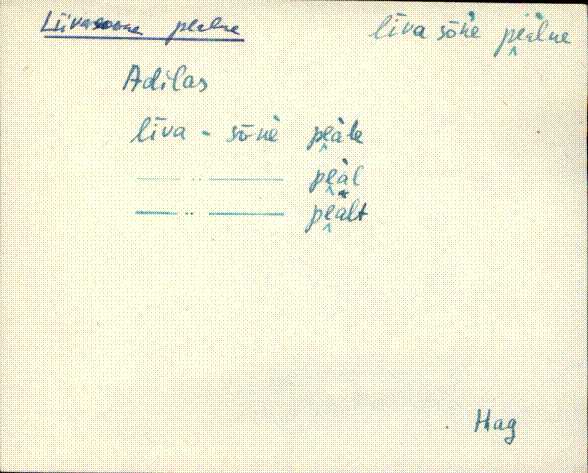 Liivasoone pealne
līva sōǹe pe̬àlne
Adilas
līva - sōǹè pe̬àle
—— ‥ —— pe̬àl
—— ‥ —— pe̬àlt
Hag